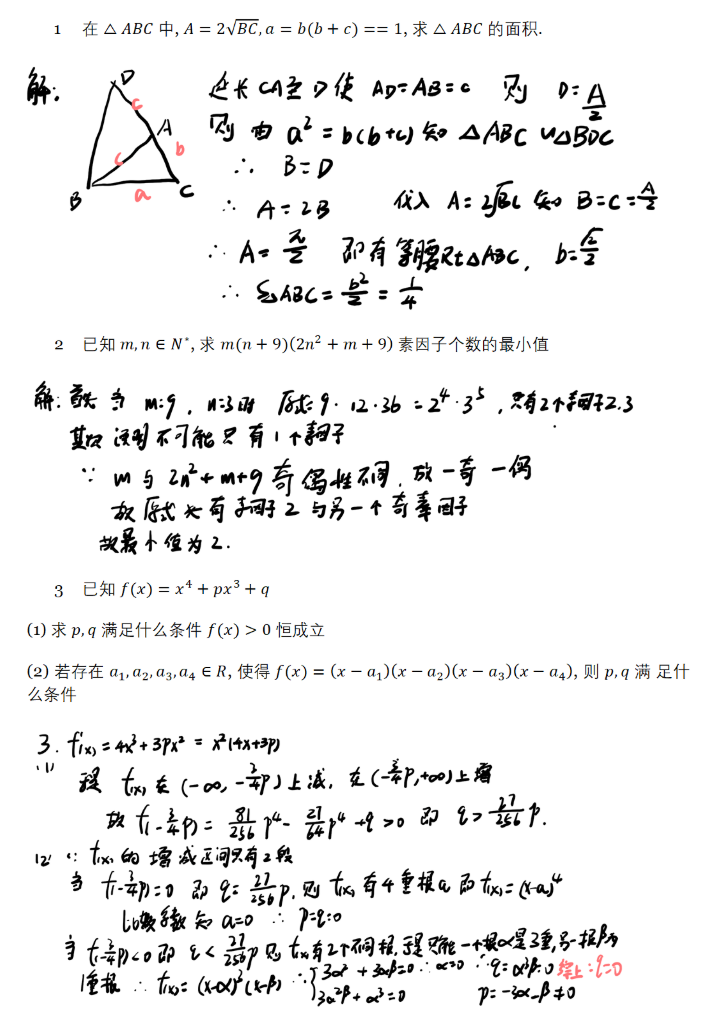 1 在 △ ABC 中, A = 2√BC, a = b(b + c) == 1, 求 △ ABC 的面积.
解:
延长CA至D使 AD=AB=c 则 D=A/2
则由 a²=b(b+c) 知 △ABC ∽ △BDC
∴ B=D
∴ A=2B 代入 A=2√BC 知 B=C=A/2
∴ A=π/2 即有等腰Rt△ABC, b=√2/2
∴ S△ABC=b²/2=1/4
D
c
A
c
b
B
a
C
2 已知 m, n ∈ N*, 求 m(n + 9)(2n² + m + 9) 素因子个数的最小值
解: 首先 当 m=9, n=3时 原式=9·12·36=2⁴·3⁵, 只有2个素因子2.3
其次 说明不可能只有1个素因子
∵ m与2n²+m+9 奇偶性不同, 故一奇一偶
故原式必有素因子2与另一个奇素因子
故最小值为2.
3 已知 f(x) = x⁴ + px³ + q
(1) 求 p, q 满足什么条件 f(x) > 0 恒成立
(2) 若存在 a₁, a₂, a₃, a₄ ∈ R, 使得 f(x) = (x − a₁)(x − a₂)(x − a₃)(x − a₄), 则 p, q 满 足什
么条件
3. f'(x)=4x³+3px²=x²(4x+3p)
(1)
f(x)在(-∞,-3/4p)上减, 在(-3/4p,+∞)上增
故 f(-3/4p)=81/256p⁴-27/64p⁴+q>0 即 q>27/256p.
(2) ∵ f(x)的增减区间只有2段
当 f(-3/4p)=0 即 q=27/256p, 则 f(x)有4重根a 即f(x)=(x-a)⁴
比较系数知 a=0 ∴ p=q=0
当 f(-3/4p)<0 即 q<27/256p 则 f(x)有2个不同根, 只能一个根α是3重,另一根β为
1重根 ∴ f(x)=(x-α)³(x-β) ∴ {3α²+3αβ=0 ∴α=0 ∴q=α³β=0 综上:q=0
3α²β+α³=0 p=-3α-β≠0